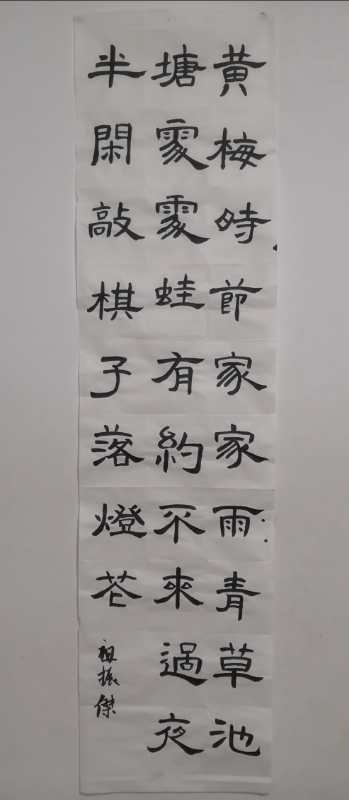 黄梅時節家家雨青草池
塘處處蛙有約不來過夜
半閑敲棋子落燈花
祖振傑